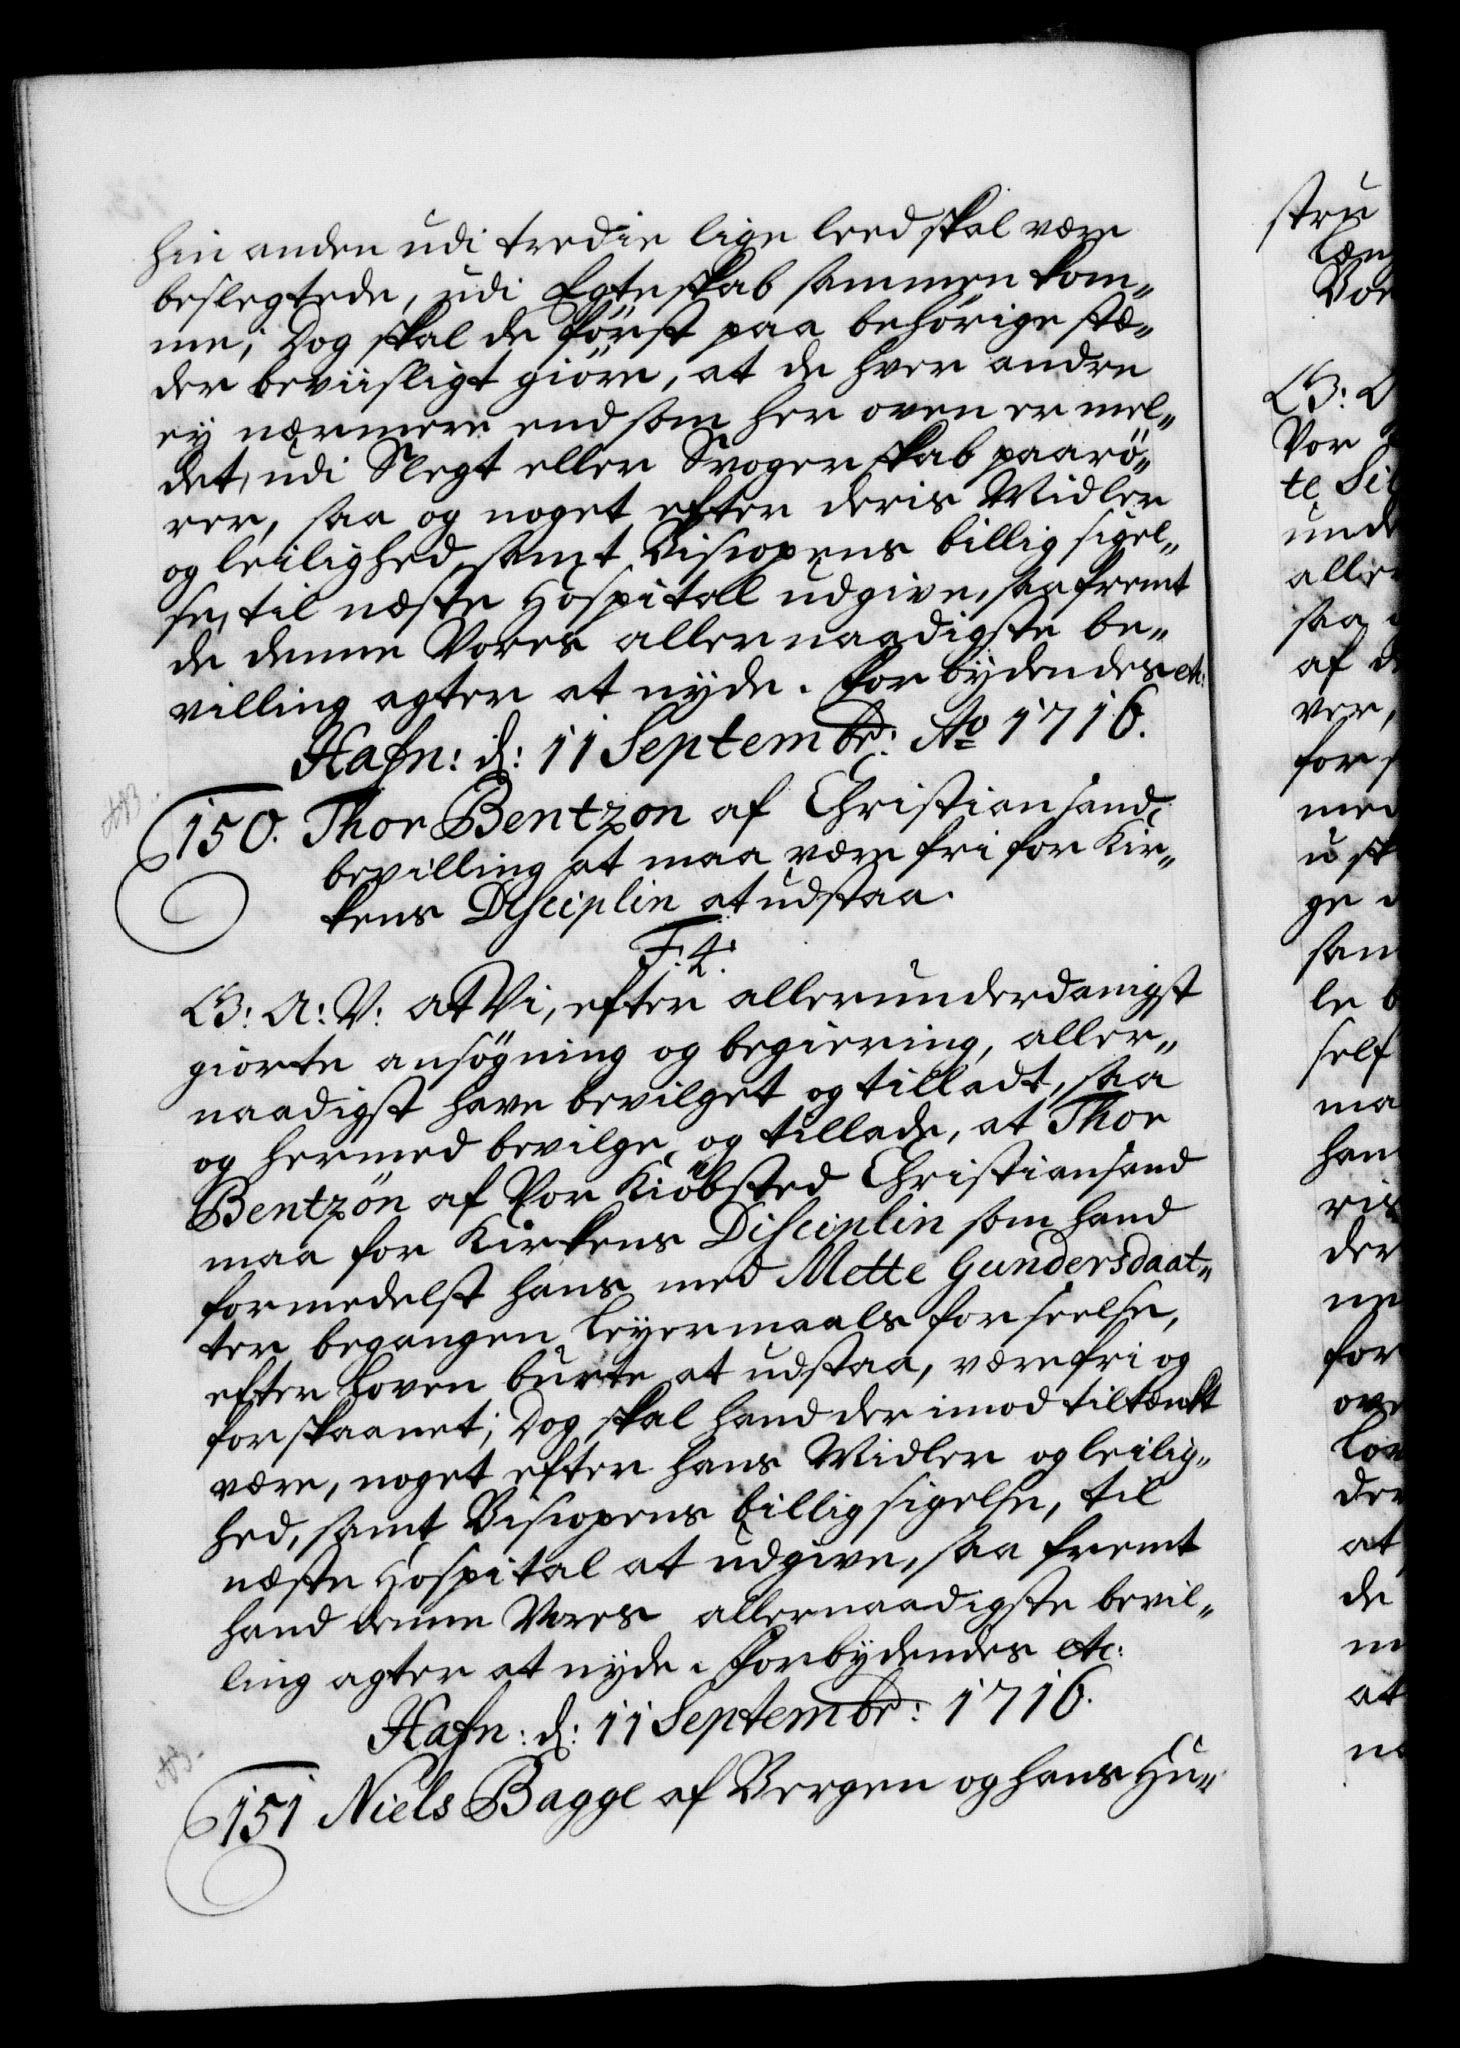 hin anden udi tredie lige leed skal være
beslegtede, udi Egteskab sammen kom„
me; Dog skal de først paa behørige stæ„
der beviisligt giöre, at de hver andre
ey nærmere end som her oven er mel„
det, udi Slegt eller Svogerskab paarö„
rer, saa og noget efter deris Midler
og leilighed samt Biscopens billig sigel„
se, til næste Hospitall udgive, saafremt
de denne Vores allernaadigste be„
villing agter at nyde. Forbydendes etc:
Hafn: d: 11 Septembr: Ao 1716.
150. Thor Bentzon af Christiansand
bevilling at maa være fri for Kir„
kens Disciplin at udstaa.
F: 4.
G: A: V: at Vi, efter allerunderdanigst
giorte ansögning og begiering, aller„
naadigst have bevilget og tilladt, saa
og hermed bevilge og tillade, at Thor
Bentzön af Vor Kiöbsted Christiansand
maa for Kirkens Disciplin som hand
formedelst hans med Mette Gundersdaat„
ter begangen Leyermaals forseelse,
efter Loven burte at udstaa, være fri og
forskaanet; Dog skal hand derimod tiltænkt
være, noget efter hans Midler og leilig„
hed, samt Biscopens billig sigelse, til
næste Hospital at udgive, saa fremt
hand denne Vores allernaadigste bevil„
ling agter at nyde. Forbydendes etc:
Hafn: d: 11 Septembr: 1716.
151 Niels Bagge af Bergen og hans Hu„